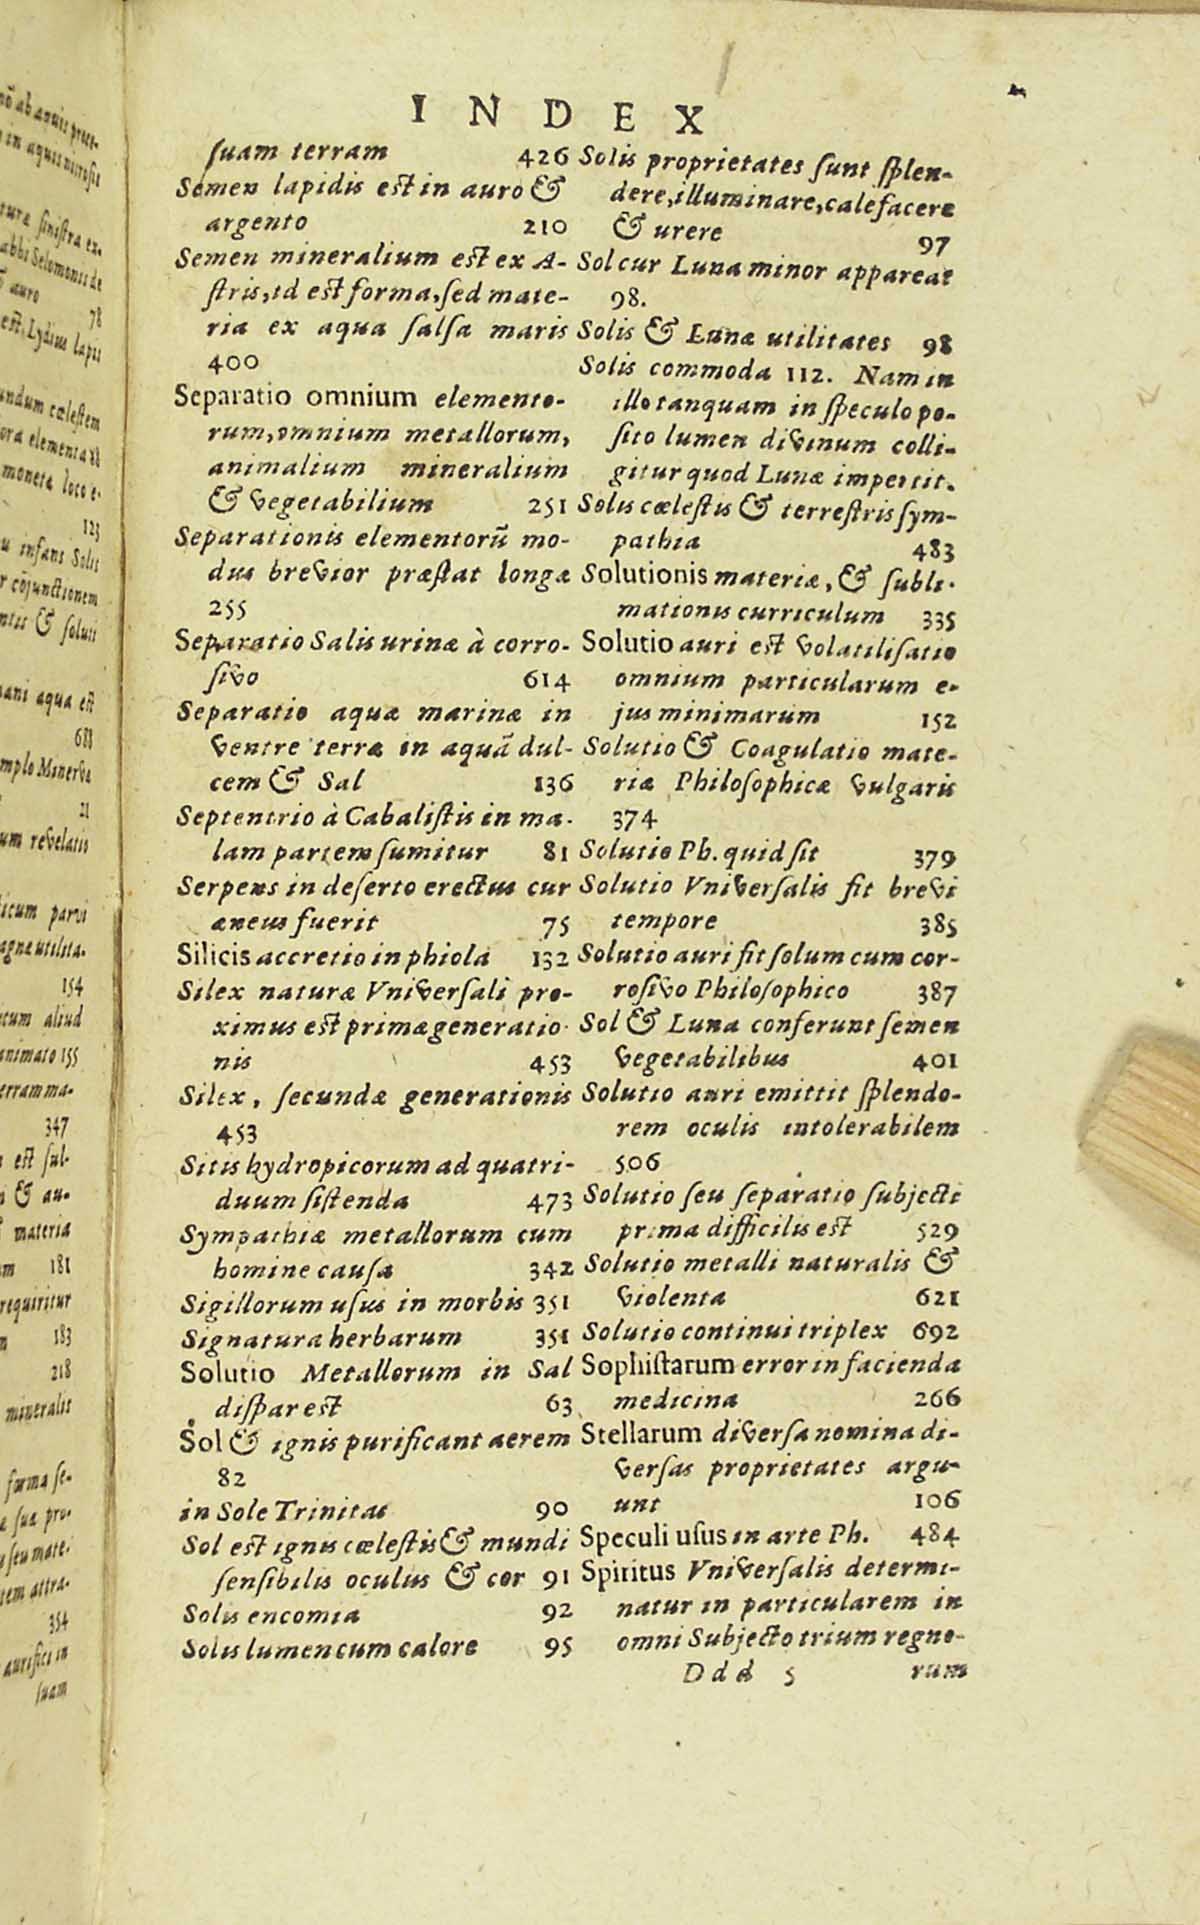 INDEX
suam terram 426
Semen lapidis est in auro &
argento 210
Semen mineralium est ex A-
stris, id est forma, sed mate-
ria ex aqua salsa maris
400
Separatio omnium elemento-
rum, omnium metallorum,
animalium mineralium
& vegetabilium 251
Separationis elementorũ mo-
dus brevior præstat longæ
255
Separatio Salis urinæ à corro-
sivo 614
Separatio aquæ marinæ in
ventre terræ in aquã dul-
cem & Sal 136
Septentrio à Cabalistis in ma-
lam partem sumitur 81
Serpens in deserto erectus cur
æneus fuerit 75
Silicis accretio in phiola 132
Silex naturæ Vniversali pro-
ximus est primæ generatio-
nis 453
Silex, secundæ generationis
453
Sitis hydropicorum ad quatri-
duum sistenda 473
Sympathiæ metallorum cum
homine causa 342
Sigillorum usus in morbis 351
Signatura herbarum 351
Solutio Metallorum in Sal
dispar est 63
Sol & ignis purificant aerem
82
in Sole Trinitas 90
Sol est ignis cœlestis & mundi
sensibilis oculus & cor 91
Solis encomia 92
Solis lumen cum calore 95
Solis proprietates sunt splen-
dere, illuminare, calefacere
& urere 97
Sol cur Luna minor appareat
98.
Solis & Lunæ utilitates 98
Solis commoda 112. Nam in
illo tanquam in speculo po-
sito lumen divinum colli-
gitur quod Lunæ impertit.
Solis cœlestis & terrestris sym-
pathia 483
Solutionis materiæ, & subli-
mationis curriculum 335
Solutio auri est volatilisatio
omnium particularum e-
jus minimarum 152
Solutio & Coagulatio mate-
riæ Philosophicæ vulgaris
374
Solutio Ph. quid sit 379
Solutio Vniversalis fit brevi
tempore 385
Solutio auri fit solum cum cor-
rosivo Philosophico 387
Sol & Luna conferunt semen
vegetabilibus 401
Solutio auri emittit splendo-
rem oculis intolerabilem
506
Solutio seu separatio subjecti
prima difficilis est 529
Solutio metalli naturalis &
violenta 621
Solutio continui triplex 692
Sophistarum error in facienda
medicina 266
Stellarum diversa nomina di-
versas proprietates argu-
unt 106
Speculi usus in arte Ph. 484
Spiritus Vniversalis determi-
natur in particularem in
omni Subjecto trium regno-
Ddd 5 rum